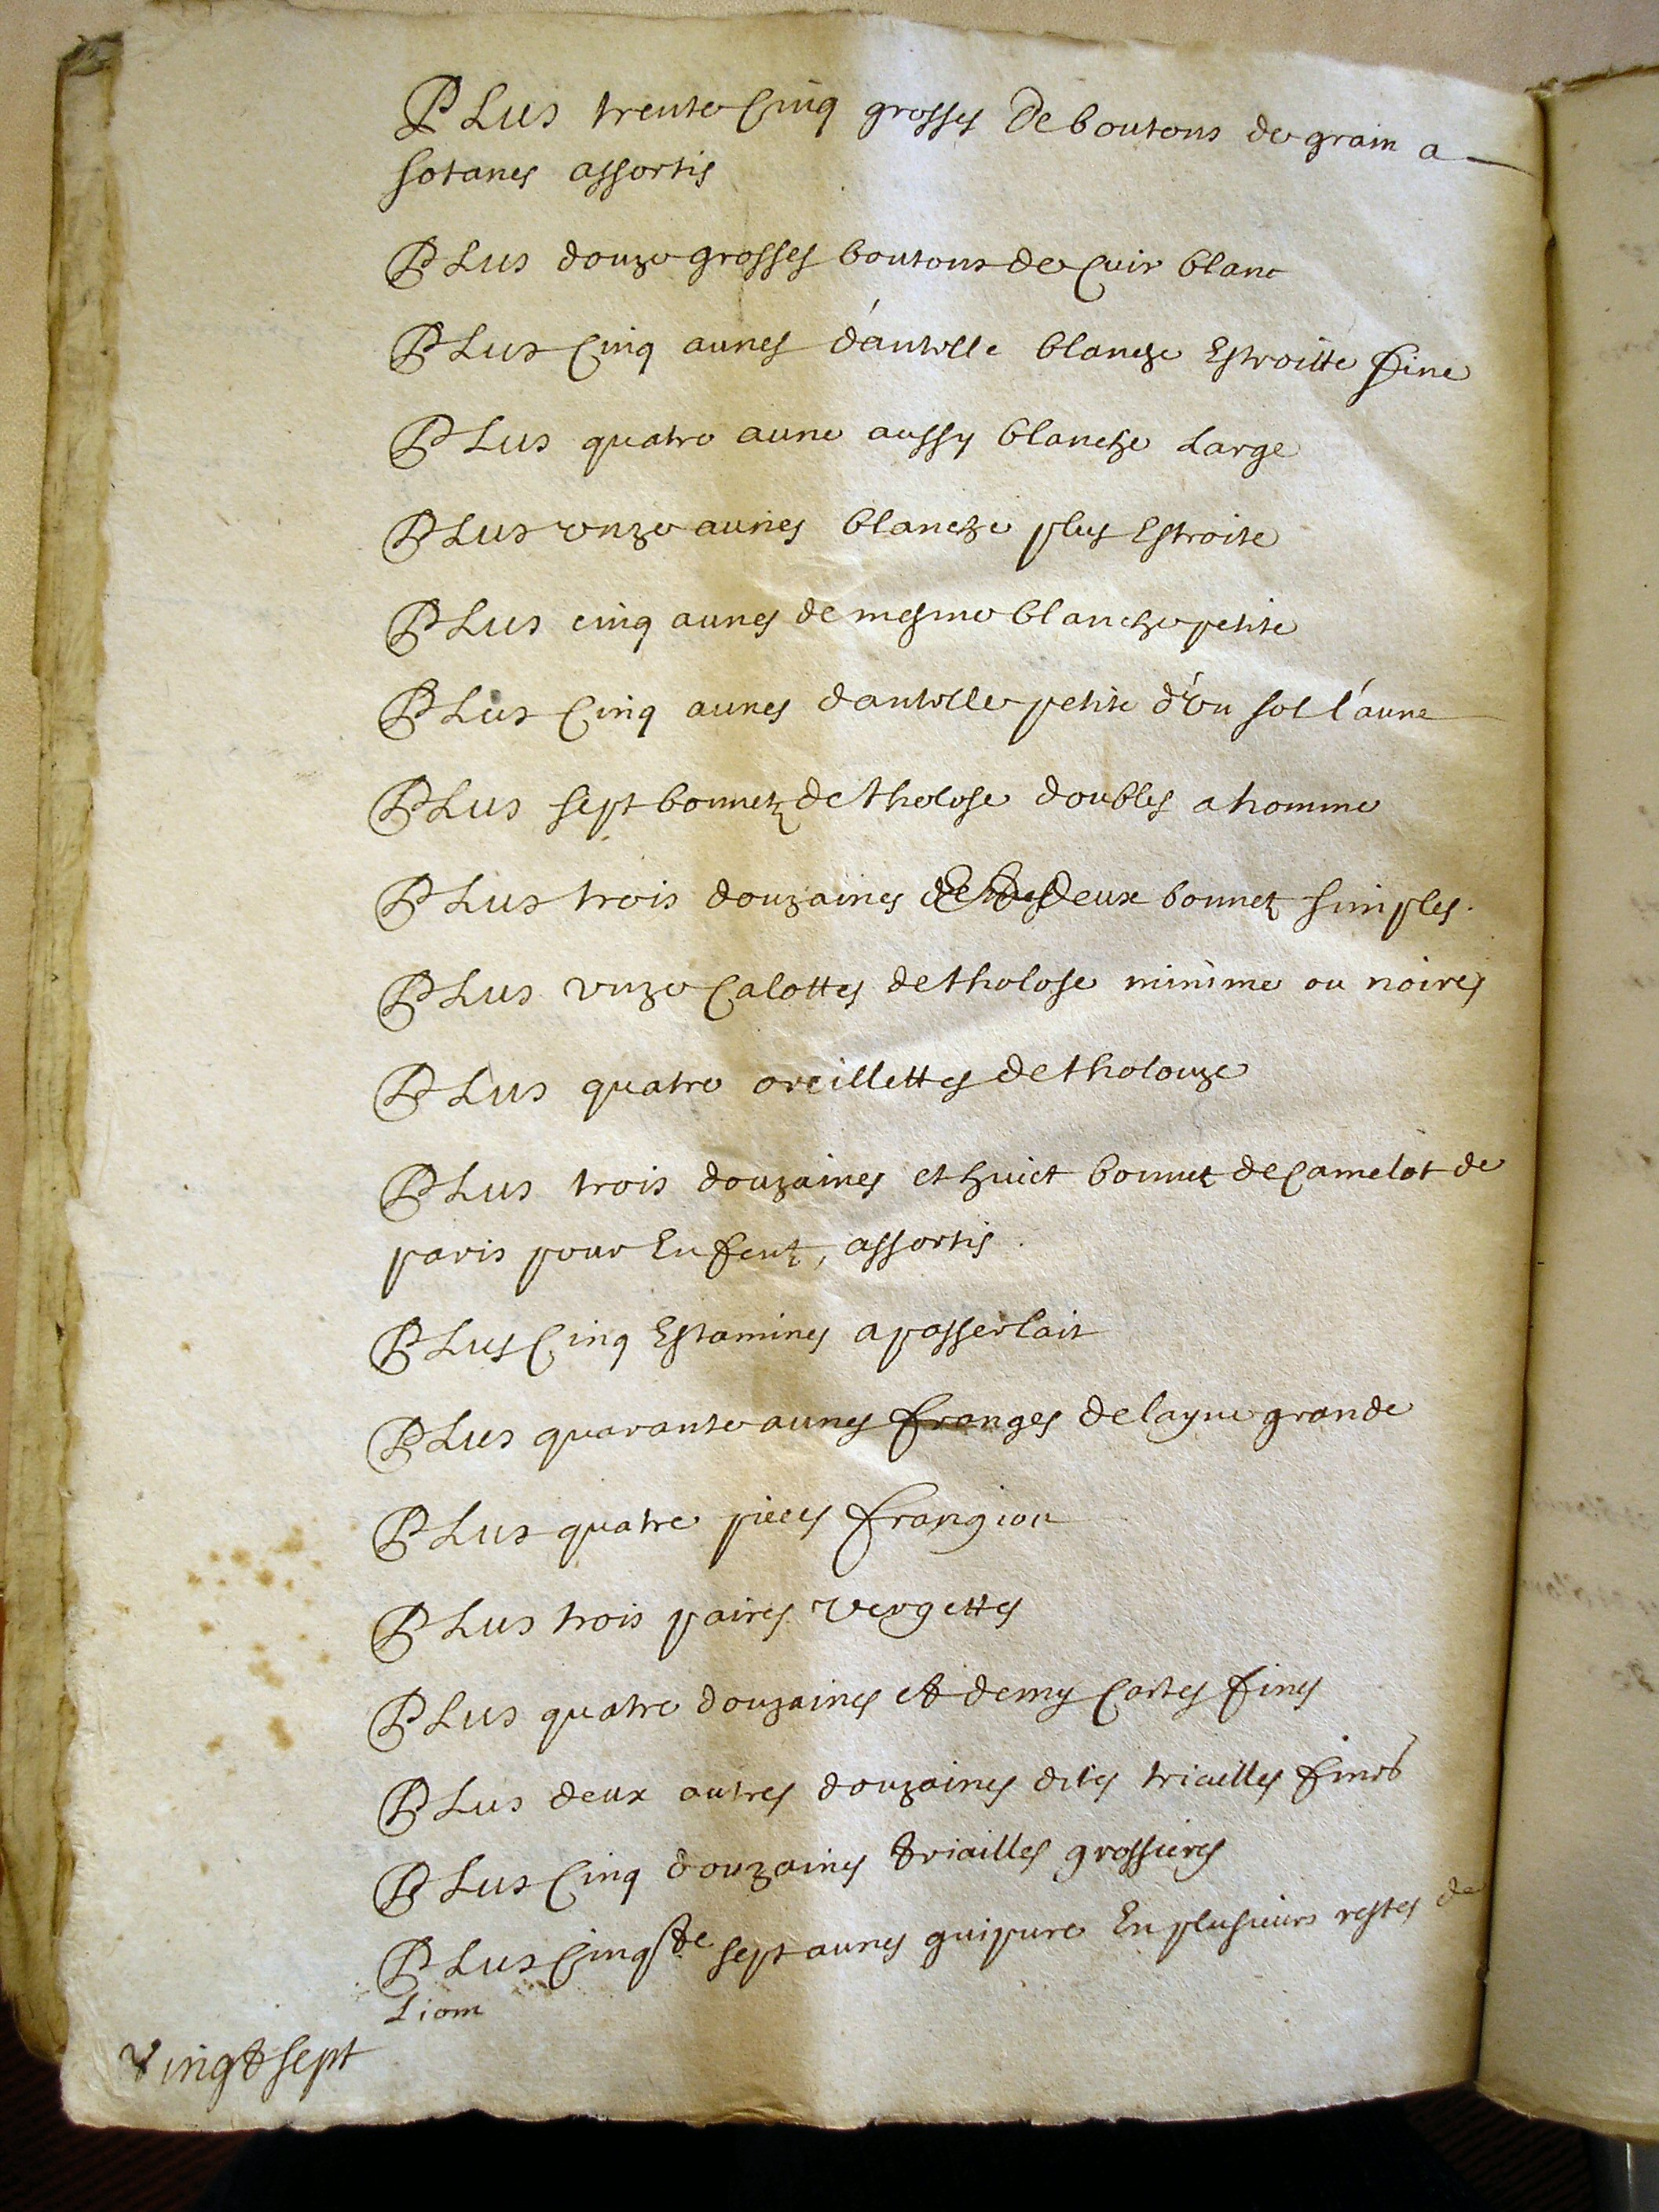 PLus trente Cinq grosses De boutons de grain a
sotanes assortis
PLus douze grosses boutons de Cuir blanc
PLus Cinq aunes d'antolle blanche Estroitte fine
PLus quatre aune aussy blanche Large
PLus onze aunes blanche plus Estroite
PLus cinq aunes de mesme blanche petite
PLus Cinq aunes dantolle petite d'Vn sol l'aune
PLus sept bonnetz de tholose doubles a homme
PLus trois douzaines deux bonnetz simples.
PLus vnze Calottes de tholose minime ou noires
PLus quatre oreillettes de tholouze
PLus trois douzaines et huict bonnetz de Camelot de
paris pour Enfentz, assortis.
PLus Cinq Estamines a passer lait
PLus quarante aunes franges de layne grande
PLus quatre pieces frangion
PLus trois paires vergettes
PLus quatre douzaines et demy Cartes fines
PLus deux autres douzaines dites triailles fines
PLus Cinq douzaines triailles grossieres
PLus Cinqte sept aunes guipure En plusieurs restes de
Liom
vingt sept